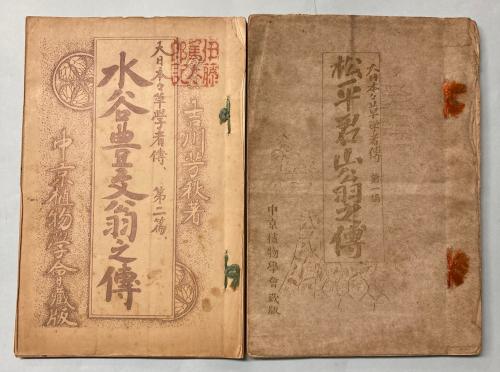 伊藤篤太郎記
吉川芳秋著
大日本々草學者傳、第二篇、
水谷豊文翁之傳
中京植物學會藏版
大日本々草學者傳 第一篇
松平君山翁之傳
中京植物學會藏版